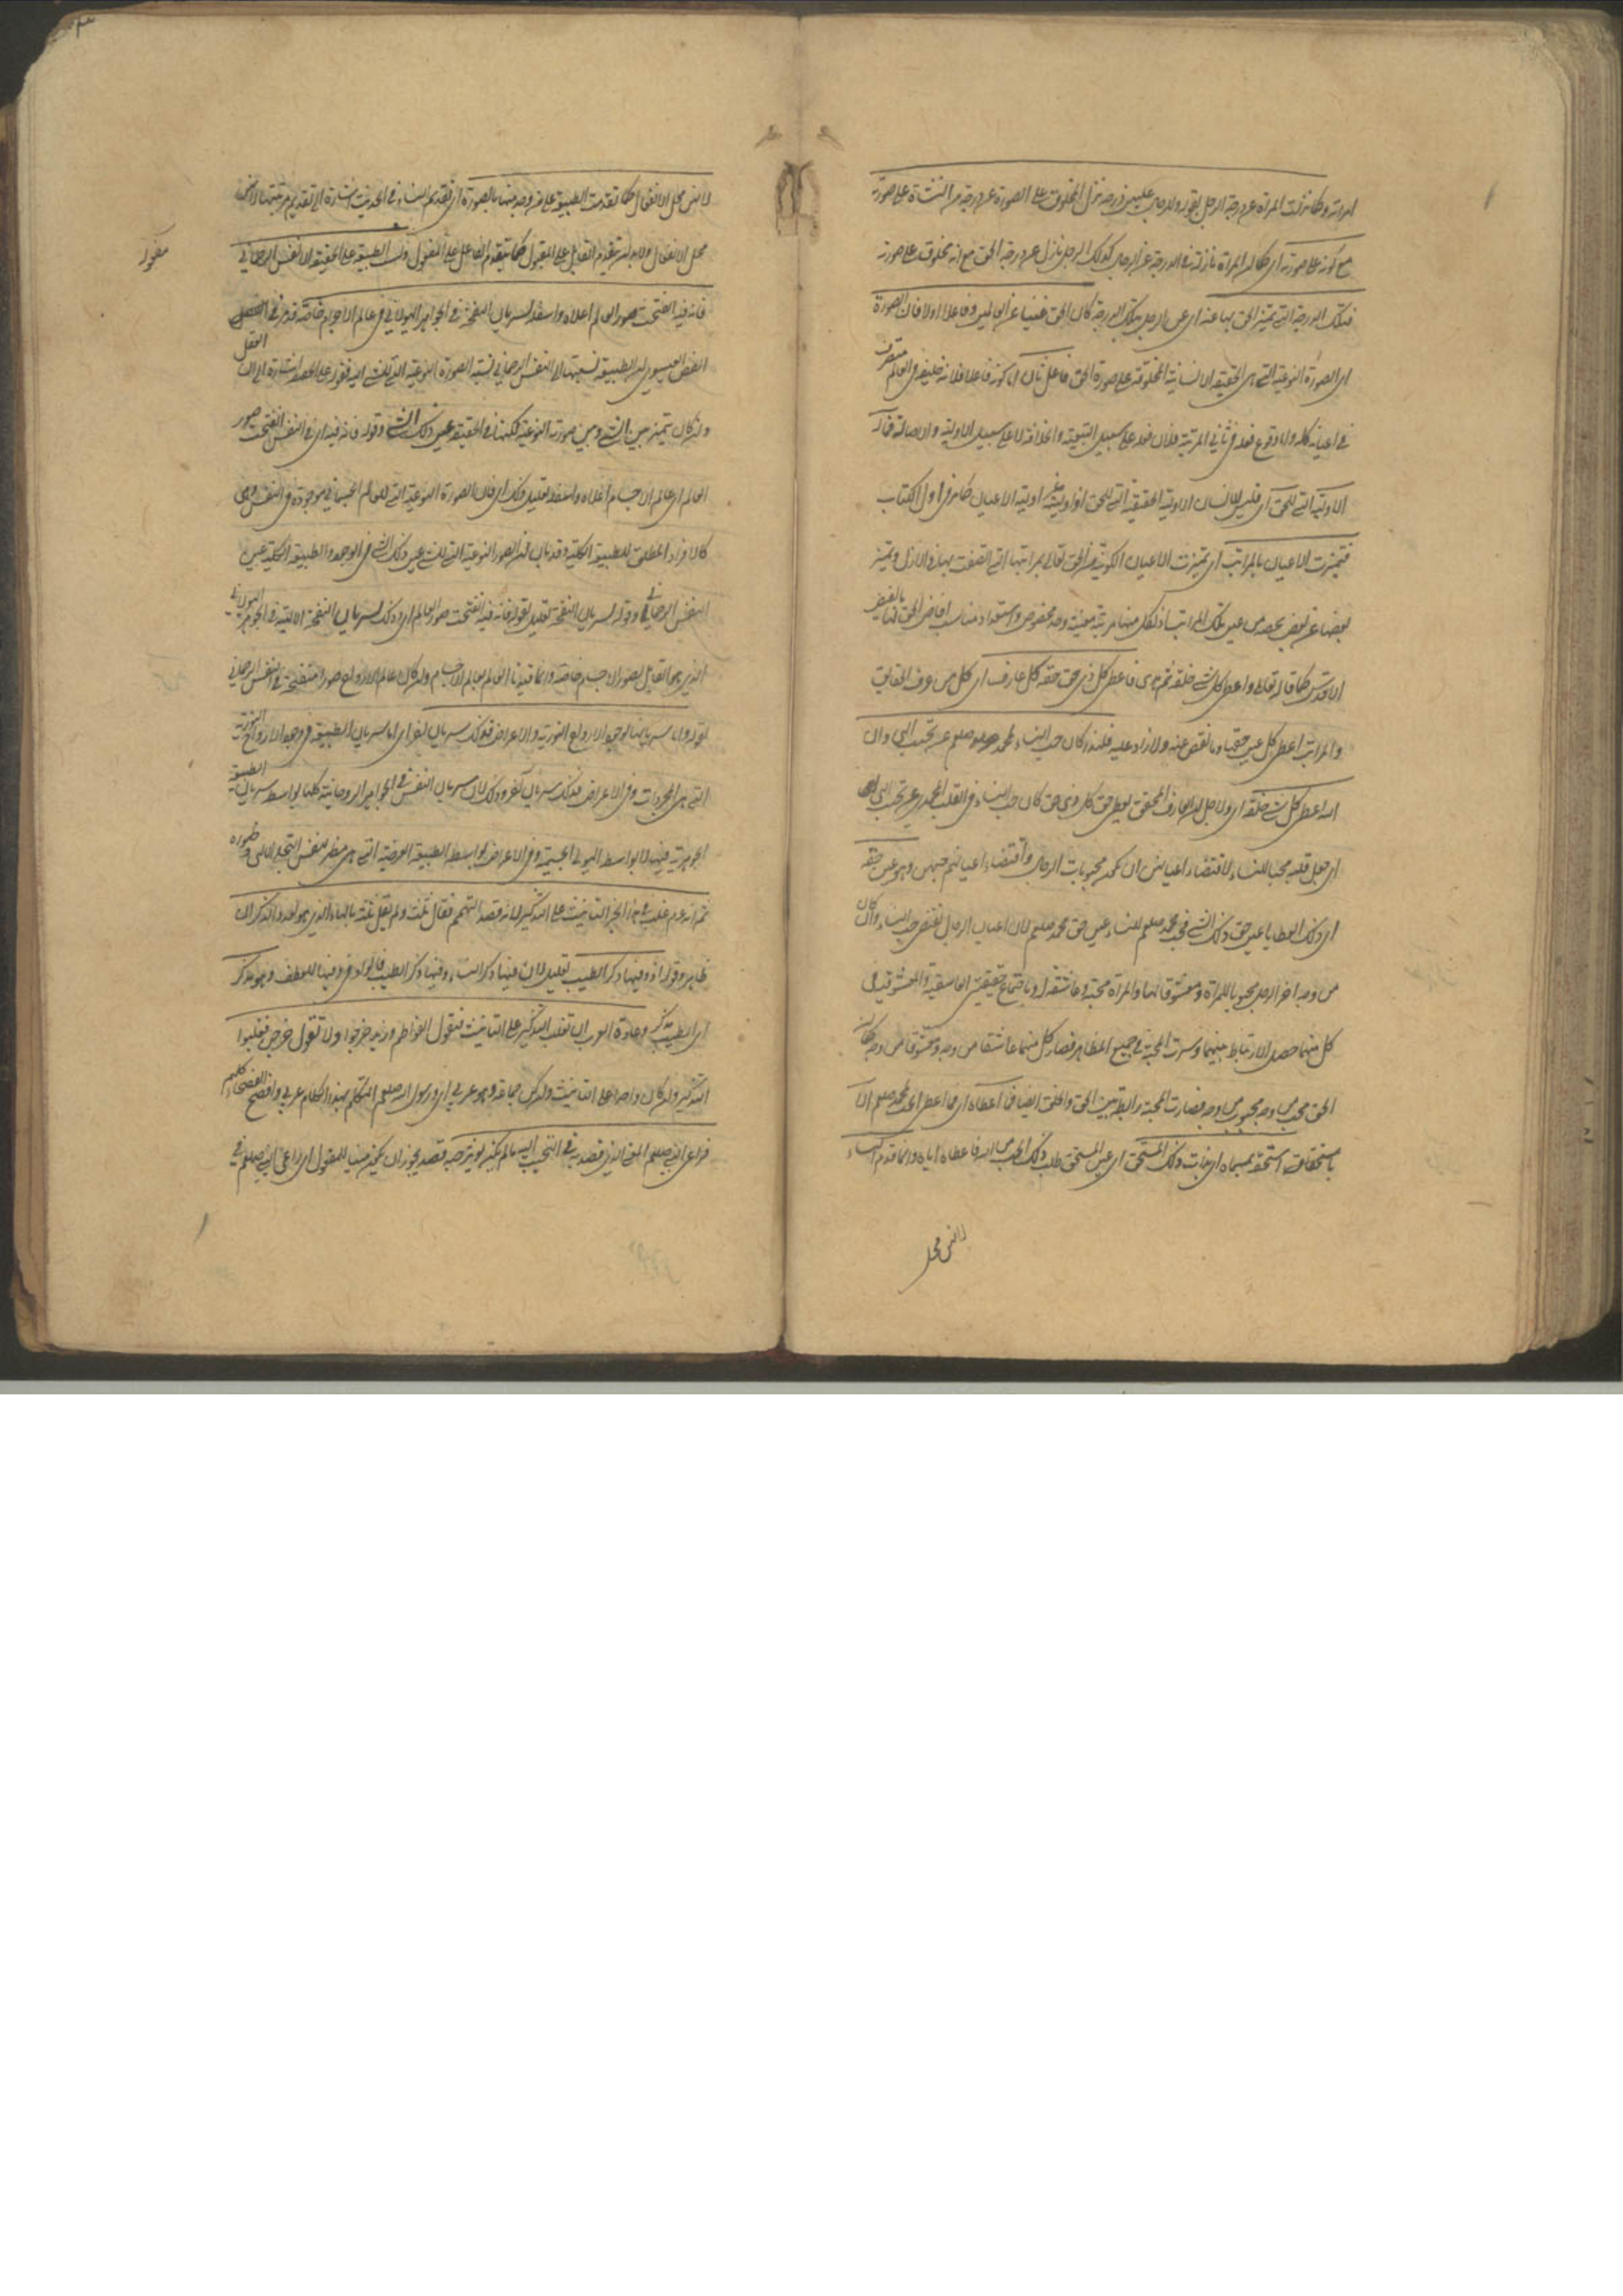 امراته وكما نزلت المراة عن درجة الرجل بقوله وللرجال عليهن درجة نزل المخلوق على الصورة عن درجة من انشاه على صورته
مع كونه على صورته اى كما ان المراة نازلة فى الدرجة عن الرجل كذلك الرجل نازل عن درجة الحق مع انه مخلوق على صورته
فبتلك الدرجة التى تميز الحق بها عنه اى عن الرجل بتلك الدرجة كان الحق غنيا عن العالمين وفاعلا اولا فان الصورة
اى الصورة النوعية التى هى الحقيقة الانسانية المخلوقة على صورة الحق فاعل ثان اما كونه فاعلا فلانه خليفة فى العالم متصرف
فى اعيانه كلها واما وقوع فعله فى ثانى المرتبة فلان فعله على سبيل التبعية والخلافة لا على سبيل الاولية والاصالة فما له
الاولية التى للحق اى فليس للانسان الاولية الحقيقية التى للحق اذ اوليته غير اولية الاعيان كما مر فى اول الكتاب
فتميزت الاعيان بالمراتب اى تميزت الاعيان الكونية عن الحق تعالى بمراتبها التى اتصفت بها فى الازل وتميز
بعضها عن بعض بحصة من عين تلك المراتب اذ لكل منها مرتبة معينة وحصة مخصوصة واستعداد مناسب افاض الحق لها بالفيض
الاقدس كما قال تعالى واعطى كل شئ خلقه ثم هدى فاعطى كل ذى حق حقه كل عارف اى كل من عرف الحقايق
والمراتب اعطى كل عين حقها وما نقص عنه ولا زاد عليه فلهذا كان حب النساء لمحمد صلعم عن تحبب الهى وان
الله اعطى كل شئ خلقه اى ولاجل ان العارف المحقق يعطى حق كل ذى حق كان حب النساء فى القلب المحمدى عن تحبب الهى
اى جعل قلبه محبا للنساء لاقتضاء اعيانهن ان تكن محبوبات الرجال واقتضاء اعيانهم حبهن وهو عين حقه
اى ذلك العطايا عين حق ذلك الشئ فحب محمد صلعم للنساء عين حق محمد صلعم لان اعيان الرجال تقتضى حب النساء وان كان
من وجه اخر الرجل محبوبا للمراة ومعشوقا لها والمراة محبة وعاشقة له وباجتماع حقيقتى العاشقية والمعشوقية فى
كل منهما حصل الارتباط بينهما وسرت المحبة فى جميع المظاهر فصار كل منهما عاشقا من وجه ومعشوقا من وجه كما ان
الحق محب من وجه محبوب من وجه فصارت المحبة رابطة بين الحق والخلق ايضا فما اعطاه اى فما اعطى الحب لمحمد صلعم الا
باستحقاق استحقه بمسماه اى بذات ذلك المستحق اى عين المستحق طلب ذلك الحب من الله فاعطاه اياه وانما قدم النساء
لانهن محل
لانهن محل الانفعال كما تقدمت الطبيعة على من وجد منها بالصورة اى تقديم النساء فى الحديث اشارة الى تقديم مرتبتها لانهن
محل الانفعال ولا بد ان يتقدم القابل على المقبول كما يتقدم الفاعل على المفعول وليست الطبيعة على الحقيقة الا النفس الرحمانى
مقول
فانه فيه انفتحت صور العالم اعلاه واسفله لسريان النفخة فى الجوهر الهيولانى فى عالم الاجرام خاصة قد مر فى
الفص العيسوى ان الطبيعة نسبتها الى النفس الرحمانى نسبة الصورة النوعية التى للشئ اليه فقوله على الحقيقة اشارة الى ان
وان كان تميز بين الشئ وبين صورته النوعية لكنها فى الحقيقة عين ذلك الشئ وقوله فانه فيه اى فى النفس انفتحت صور
العالم اى عالم الاجسام اعلاه واسفله تعليل ذلك اى فان الصورة النوعية التى للعالم الجسمانى موجودة فى النفس وهى
كالافراد المطلق للطبيعة الكلية وقد بان ان الصور النوعية التى للشئ عين ذلك الشئ فى الوجود والطبيعة الكلية عين
النفس الرحمانى وقوله لسريان النفخة تعليل لقوله فانه فيه انفتحت صور العالم اى وذلك لسريان النفخة الالهية فى الجوهر الهيولانى
الذى هو القابل لصور الاجسام خاصة وانما قيدنا العالم بعالم الاجسام وان كان عالم الارواح صورا منفتحة فى النفس الرحمانى
لقوله واما سريانها لوجود الارواح النورية والاعراض فذلك سريان اخر اى اما سريان الطبيعة فى وجود الارواح النورية
التى هى المجردات وفى الاعراض فذلك سريان اخر وذلك لان سريان النفس فى الجواهر الروحانية كلها بواسطة سريان الطبيعة
الجوهرية فيها لا بواسطة الهيولى الجسمية وفى الاعراض بواسطة الطبيعة العرضية التى هى مظهر لنفس التجلى الالهى وظهوره
ثم انه عم غلب فى هذا الخبر التانيث على التذكير لانه قصد التهمم فقال ثلث ولم يقل ثلثة بالهاء الذى هو لعدد الذكران
ظاهر وقوله اذ وفيها ذكر الطيب تعليل لان فيها ذكر النساء وفيها ذكر الطيب فالواو فى وفيها للعطف وهو مذكر
اى الطيب مذكر وعادة العرب ان تغلب التذكير على التانيث فتقول الفواطم وزيد خرجوا ولا تقول خرجن فغلبوا
التذكير وان كان واحدا على التانيث وان كن جماعة وهو عربى اى ورسول الله صلعم المتكلم بهذا الكلام عربى وافصح الفصحاء كلهم
فراعى النبى صلعم المعنى الذى قصد به فى التحبب اليه ما لم يكن يوثر حبه قصد يجوز ان يكون مبنيا للمفعول اى راعى النبى صلعم فى